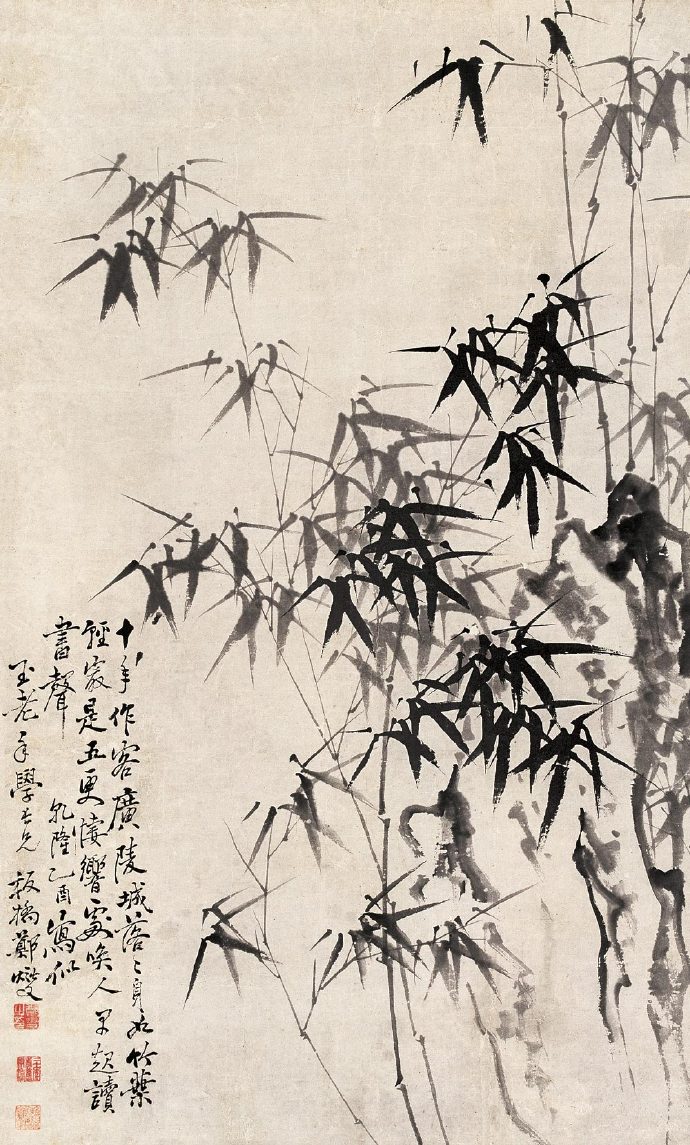 十年作客廣陵城落々身如竹葉
輕最是五更悽響處喚人早起讀
書聲
乾隆乙酉寫似
玉老年學兄
板橋鄭燮